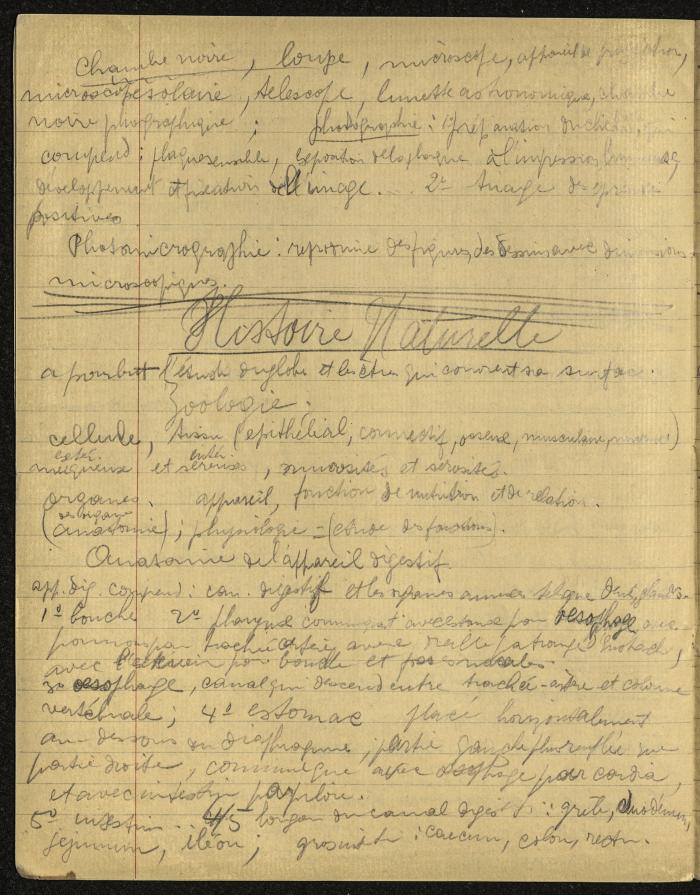 Chambre noire, loupe, microscope, appareil de projection,
microscope solaire, télescope, lunette astronomique, chambre
noire phographique ; photographie : 1º préparation du cliché, qui
comprend : plaque sensible, exposition de la plaque à l'impression lumineuse,
développement et fixation de l'image... 2º tirage des épreuves
positives
Photomicrographie : reproduire des figures, des dessins avec dimensions
microscopiques.
Histoire Naturelle
a pour but l'étude du globe et les êtres qui couvrent sa surface.
Zoologie.
cellule, tissu (epithélial, connectif, osseux, musculaire, nerveux)
muqueuses et séreuses, muccosités et sérosités.
organes. appareil, fonction de nutrition et de relation.
(des organes
anatomie) ; physiologie = (étude des fonctions).
Anatomie de l'appareil digestif.
app. dig. comprend : can. digestif et les organes annexes tels que dents, glandes
1º bouche 2º pharynx communiquant avec estomac par oesophage, avec
poumons par trachée artère, avec oreille par trompe d'Eustach,
avec l'extérieur par bouche et fosses nasales.
3º oesophage, canal qui descend entre trachée-artère et colonne
vertébrale ; 4º estomac placé horizontalement
au-dessous du diaphragme, partie gauche plus renflée que
partie droite, communique avec oesophage par cardia,
et avec intestin par pilore.
5º intestin .. 4/5 longueur du canal digestif : grêle, duodénum,
jejunum, iléon ; gros intest. : caecum, colon, rectum.